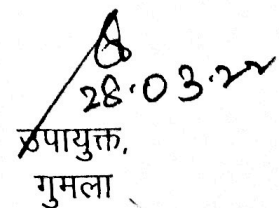 28.03.22
उपायुक्त,
गुमला